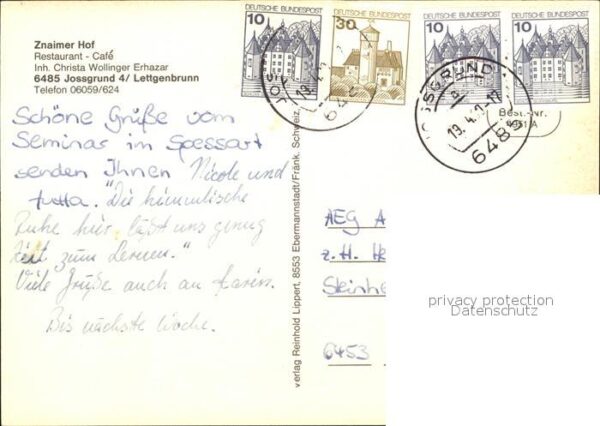 Znaimer Hof
Restaurant - Café
Inh. Christa Wollinger Erhazar
6485 Jossgrund 4/ Lettgenbrunn
Telefon 06059/624
10
DEUTSCHE BUNDESPOST
30
DEUTSCHE BUNDESPOST
DEUTSCHE BUNDESPOST
10
DEUTSCHE BUNDESPOST
10
JOSSGRUND
19.4.
6485
Best.-Nr.
Schöne Grüße vom
Seminar im Spessart
senden Ihnen Nicole und
Jutta. "Die himmlische
Ruhe hier läßt uns genug
Zeit zum Lernen."
Viele Grüße auch an Karin.
Bis nächste Woche.
verlag Reinhold Lippert, 8553 Ebermannstadt/Fränk. Schweiz
AEG A
z. H. He
Steinhe
6453
privacy protection
Datenschutz